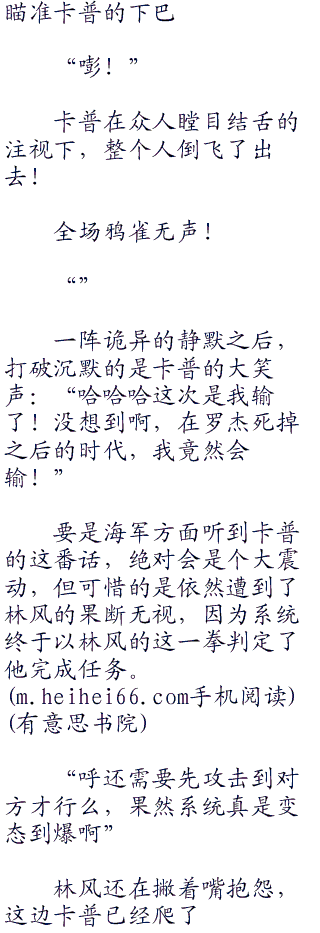 瞄准卡普的下巴
“嘭！”
卡普在众人瞠目结舌的
注视下，整个人倒飞了出
去！
全场鸦雀无声！
“”
一阵诡异的静默之后，
打破沉默的是卡普的大笑
声：“哈哈哈这次是我输
了！没想到啊，在罗杰死掉
之后的时代，我竟然会
输！”
要是海军方面听到卡普
的这番话，绝对会是个大震
动，但可惜的是依然遭到了
林风的果断无视，因为系统
终于以林风的这一拳判定了
他完成任务。
(m.heihei66.com手机阅读)
(有意思书院)
“呼还需要先攻击到对
方才行么，果然系统真是变
态到爆啊”
林风还在撇着嘴抱怨，
这边卡普已经爬了